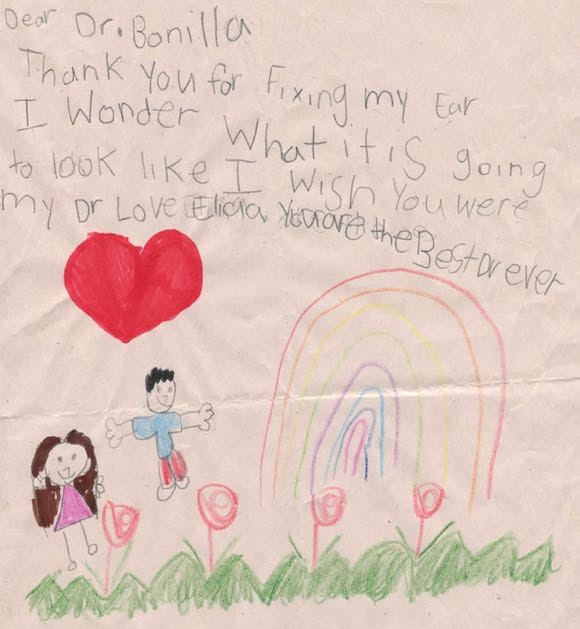 Dear Dr. Bonilla
Thank You for Fixing my Ear
I Wonder What it is going
to look like I Wish You were
my Dr Love Elicia You are the Best Dr ever